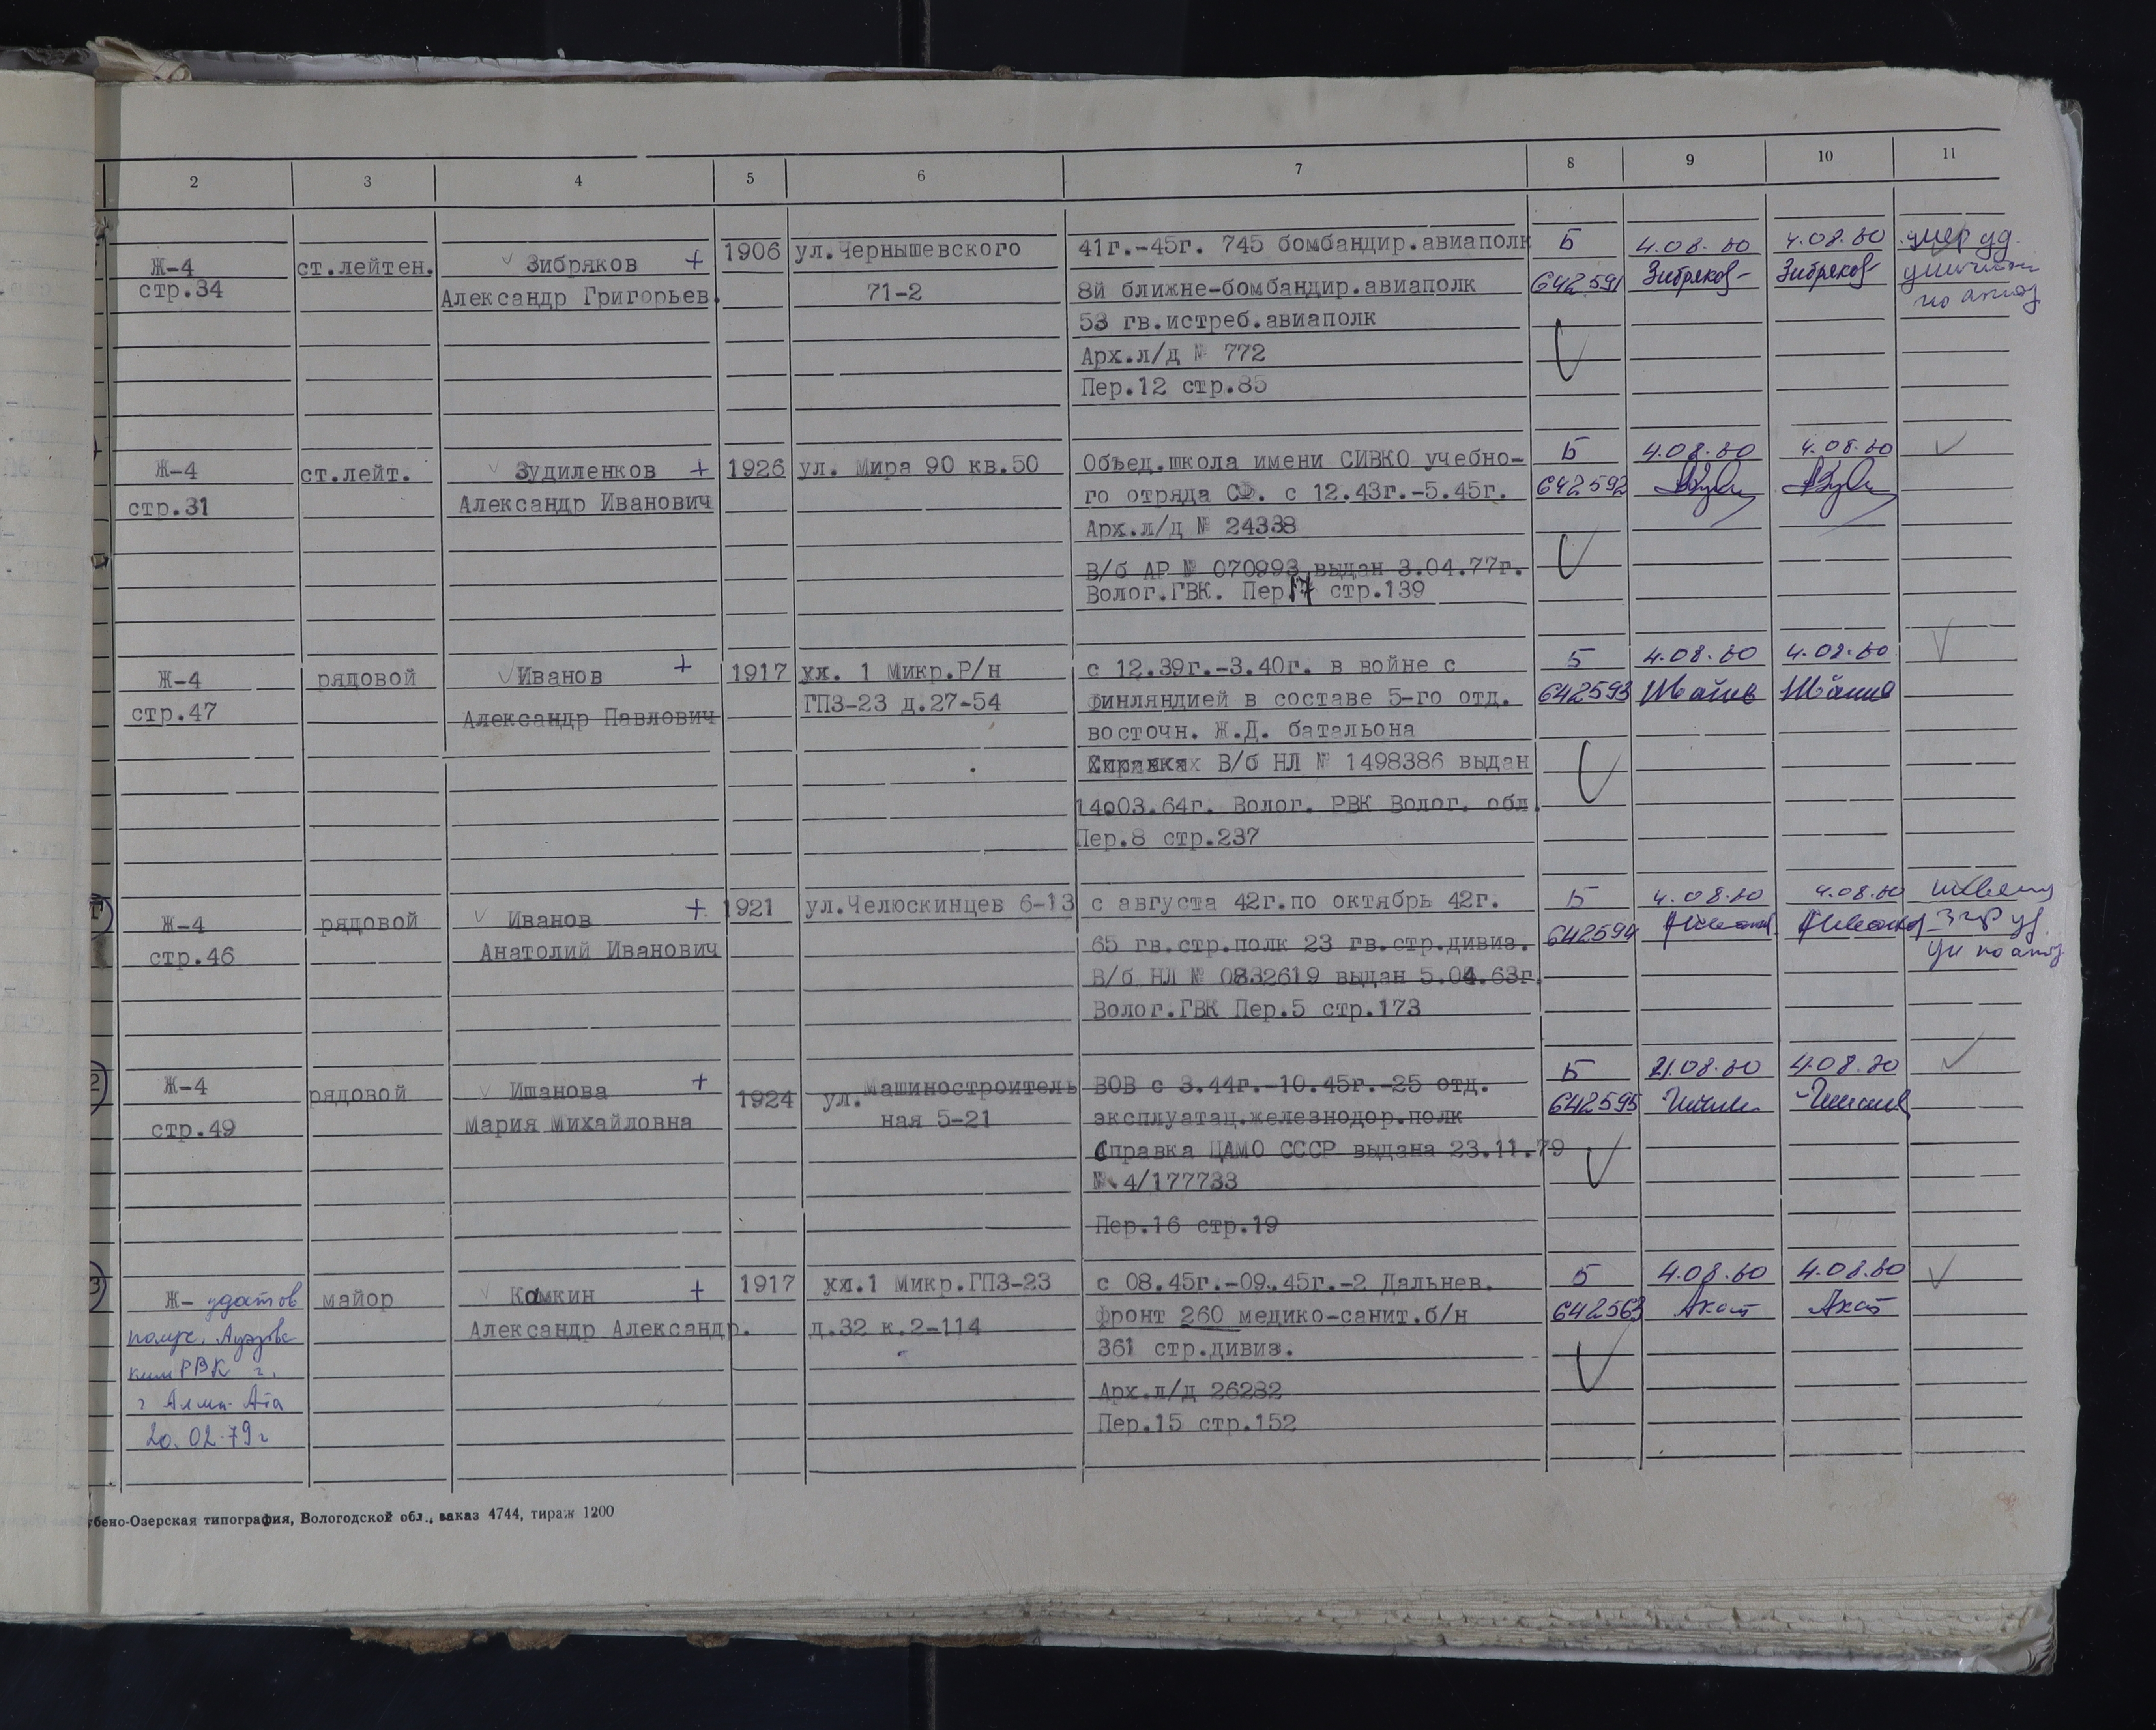 2 3 4 5 6 7 8 9 10 11
Ж-4
стр.34
ст.лейтен.
Зибряков +
Александр Григорьев.
1906
ул.Чернышевского
71-2
41г.-45г. 745 бомбандир.авиаполк
8й ближне-бомбандир.авиаполк
53 гв.истреб.авиаполк
Арх.л/д № 772
Пер.12 стр.85
Б
642591
4.08.80
Зибряков
4.08.80
Зибряков
умер уд.
по акту
Ж-4
стр.31
ст.лейт.
Зудиленков +
Александр Иванович
1926
ул. Мира 90 кв.50
Объед.школа имени СИВКО учебно-
го отряда СФ. с 12.43г.-5.45г.
Арх.л/д № 24338
В/б АР № 070993 выдан 3.04.77г.
Волог.ГВК. Пер17 стр.139
Б
642592
4.08.80
4.08.80
Ж-4
стр.47
рядовой
Иванов +
Александр Павлович
1917
ул. 1 Микр.Р/н
ГПЗ-23 д.27-54
с 12.39г.-3.40г. в войне с
финляндией в составе 5-го отд.
восточн. Ж.Д. батальона
В/б НЛ № 1498386 выдан
14.03.64г. Волог. РВК Волог. обл.
Пер.8 стр.237
Б
642593
4.08.80
4.08.80
Ж-4
стр.46
рядовой
Иванов +
Анатолий Иванович
1921
ул.Челюскинцев 6-13
с августа 42г.по октябрь 42г.
65 гв.стр.полк 23 гв.стр.дивиз.
В/б НЛ № 0832619 выдан 5.04.63г.
Волог.ГВК Пер.5 стр.173
Б
642594
4.08.80
4.08.80
Ж-4
стр.49
рядовой
Ишанова +
Мария Михайловна
1924
ул.Машиностроитель
ная 5-21
ВОВ с 3.44г.-10.45г.-25 отд.
эксплуатац.железнодор.полк
Справка ЦАМО СССР выдана 23.11.79
№ 4/177733
Пер.16 стр.19
Б
642595
21.08.80
4.08.80
Ж- удостов
г Алма-Ата
20.02.79г
майор
Камкин +
Александр Александр.
1917
ул.1 Микр.ГПЗ-23
д.32 к.2-114
с 08.45г.-09.45г.-2 Дальнев.
фронт 260 медико-санит.б/н
361 стр.дивиз.
Арх.л/д 26282
Пер.15 стр.152
Б
642563
4.08.80
4.08.80
убено-Озерская типография, Вологодской обл., заказ 4744, тираж 1200